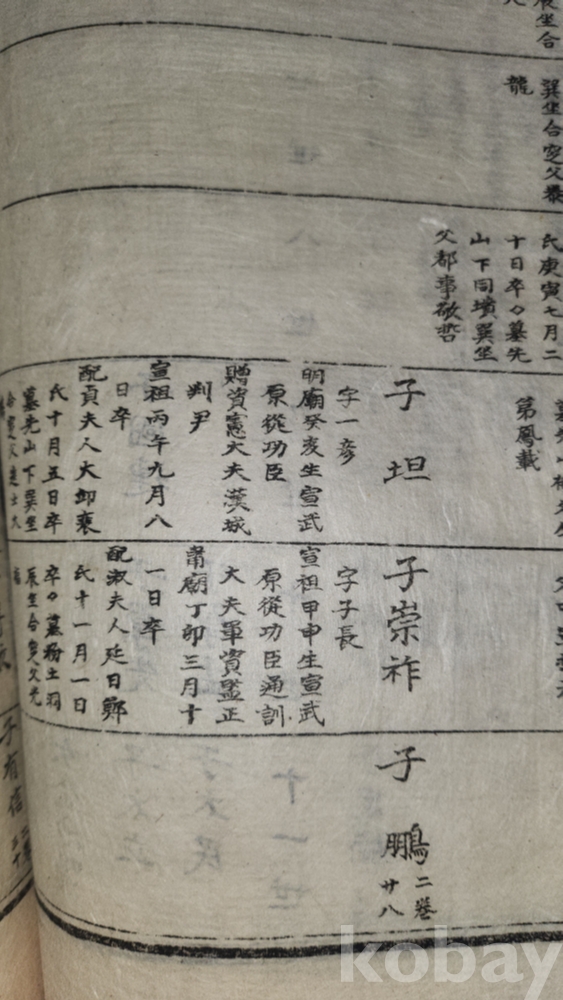 辰坐合
巽坐合窆父㬥
龍
氏庚寅七月二
十日卒〇墓先
山下同墳巽坐
父都事敬哲
第鳳載
子 坦
字一彥
明廟癸亥生宣武
原從功臣
贈資憲大夫漢城
判尹
宣祖丙午九月八
日卒
配貞夫人大卸裵
氏十月五日卒
墓先山下巽坐
子崇祚
字子長
宣祖甲申生宣武
原從功臣通訓
大夫軍資監正
肅廟丁卯三月十
一日卒
配淑夫人延日鄭
氏十一月一日
卒〇墓粉土洞
辰坐合窆父先
子 鵬
二卷
廿八
子有信
kobay